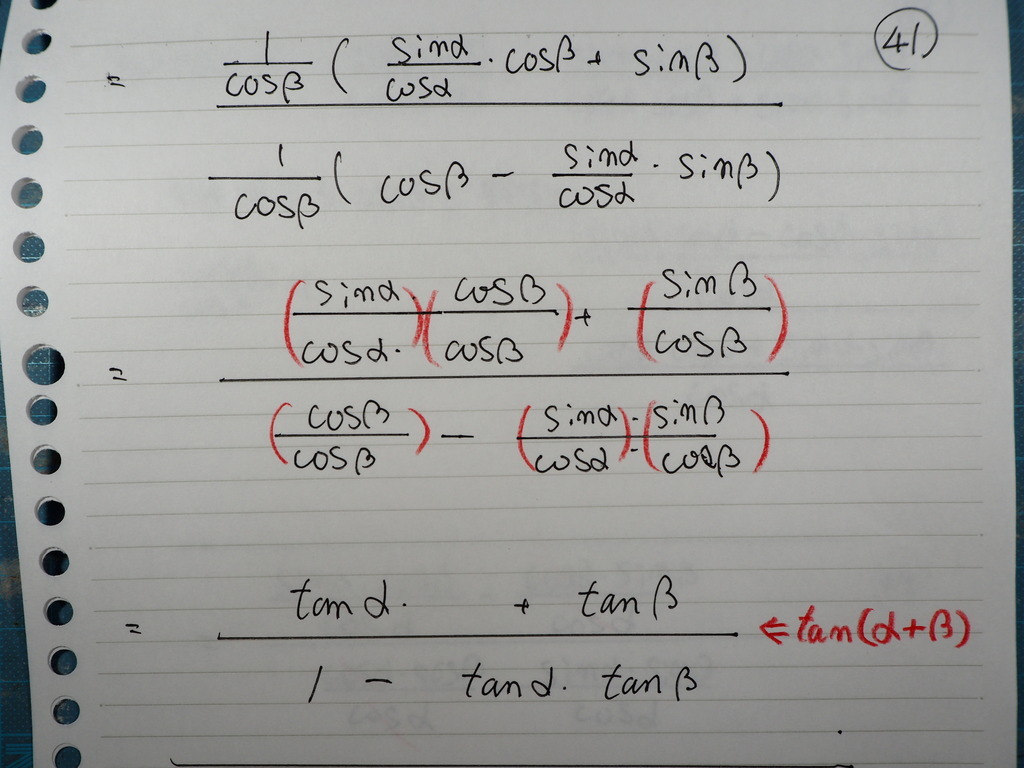 41
= 1/cosβ ( sinα/cosα · cosβ + sinβ )
1/cosβ ( cosβ − sinα/cosα · sinβ )
= (sinα·/cosα·)(cosβ/cosβ) + (sinβ/cosβ)
(cosβ/cosβ) − (sinα/cosα)·(sinβ/cosβ)
= tanα· + tanβ
⇐ tan(α+β)
1 − tanα· tanβ